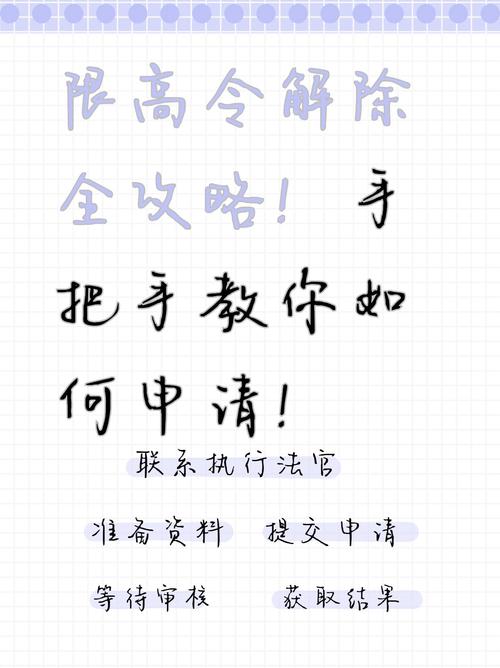 限高令解除
全攻略！手
把手教你如
何申请！
联系执行法官
准备资料 提交申请
等待审核 获取结果